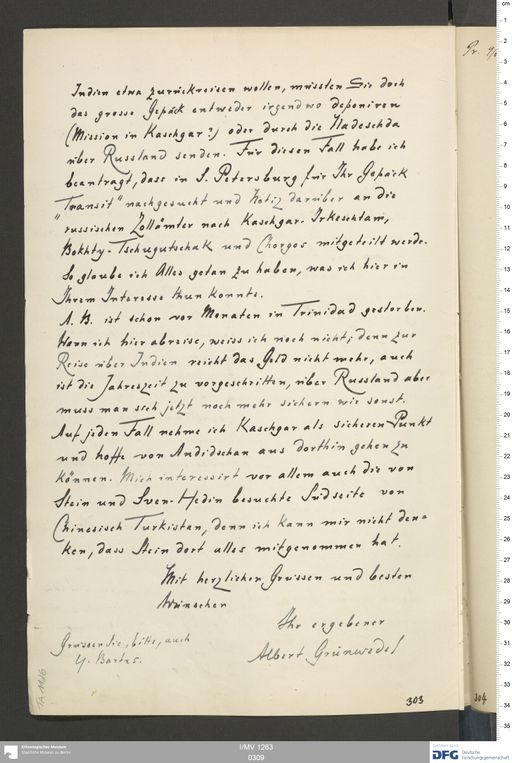 Indien etwa zurückreisen wollen, müssten Sie doch
das grosse Gepäck entweder irgendwo deponiren
(Mission in Kaschgar?) oder durch die Nadeschda
über Russland senden. Für diesen Fall habe ich
beantragt, dass in S. Petersburg für Ihr Gepäck
"Transit" nachgesucht und Notiz darüber an die
russischen Zollämter nach Kaschgar-Irkeschtam,
Bokhty-Tschugutschak und Chorgos mitgeteilt werde.
So glaube ich Alles getan zu haben, was ich hier in
Ihrem Interesse thun konnte.
A. B. ist schon vor Monaten in Trinidad gestorben.
Wenn ich hier abreise, weiss ich noch nicht, denn zur
Reise über Indien reicht das Geld nicht mehr, auch
ist die Jahreszeit zu vorgeschritten, über Russland aber
muss man sich jetzt noch mehr sichern wie sonst.
Auf jeden Fall nehme ich Kaschgar als sicheren Punkt
und hoffe von Andidschan aus dorthin gehen zu
können. Mich interessirt vor allem auch die von
Stein und Sven-Hedin besuchte Südseite von
Chinesisch Turkistan, denn ich kann mir nicht den=
ken, dass Stein dort alles mitgenommen hat.
Mit herzlichen Grüssen und besten
Wünschen
Ihr ergebener
Albert Grünwedel
Grüssen Sie, bitte, auch
H. Bartus.
TA 1926
303
304
I/MV 1263
0309
Ethnologisches Museum
Staatliche Museen zu Berlin
DFG Deutsche
Forschungsgemeinschaft